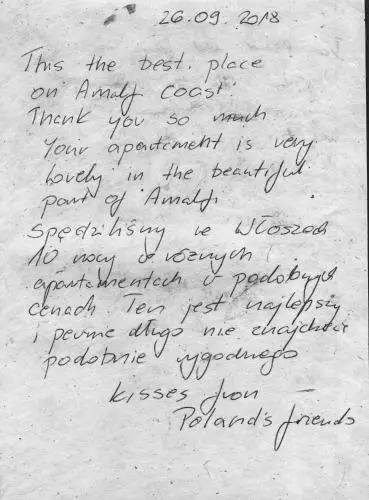 26.09.2018
This the best place
on Amalfi Coast!
Thank you so much
Your apartament is very
lovely in the beautiful
part of Amalfi
Spędziliśmy we Włoszech
10 nocy w różnych
apartamentach w podobnych
cenach. Ten jest najlepszy
i pewnie długo nie
podobnie wygodnego
kisses from
Poland's friends